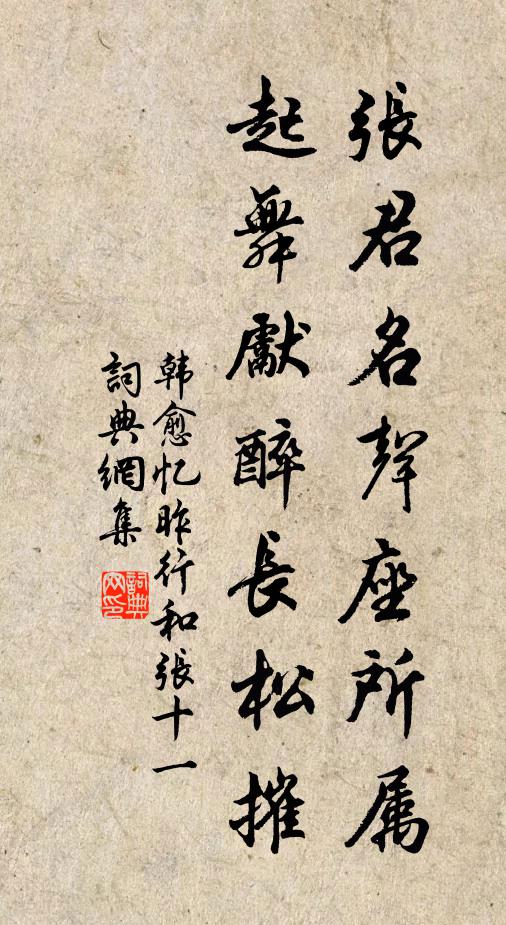 張君名聲座所属
起舞獻醉長松摧
韩愈忆昨行和張十一
詞典網集
詞典网印